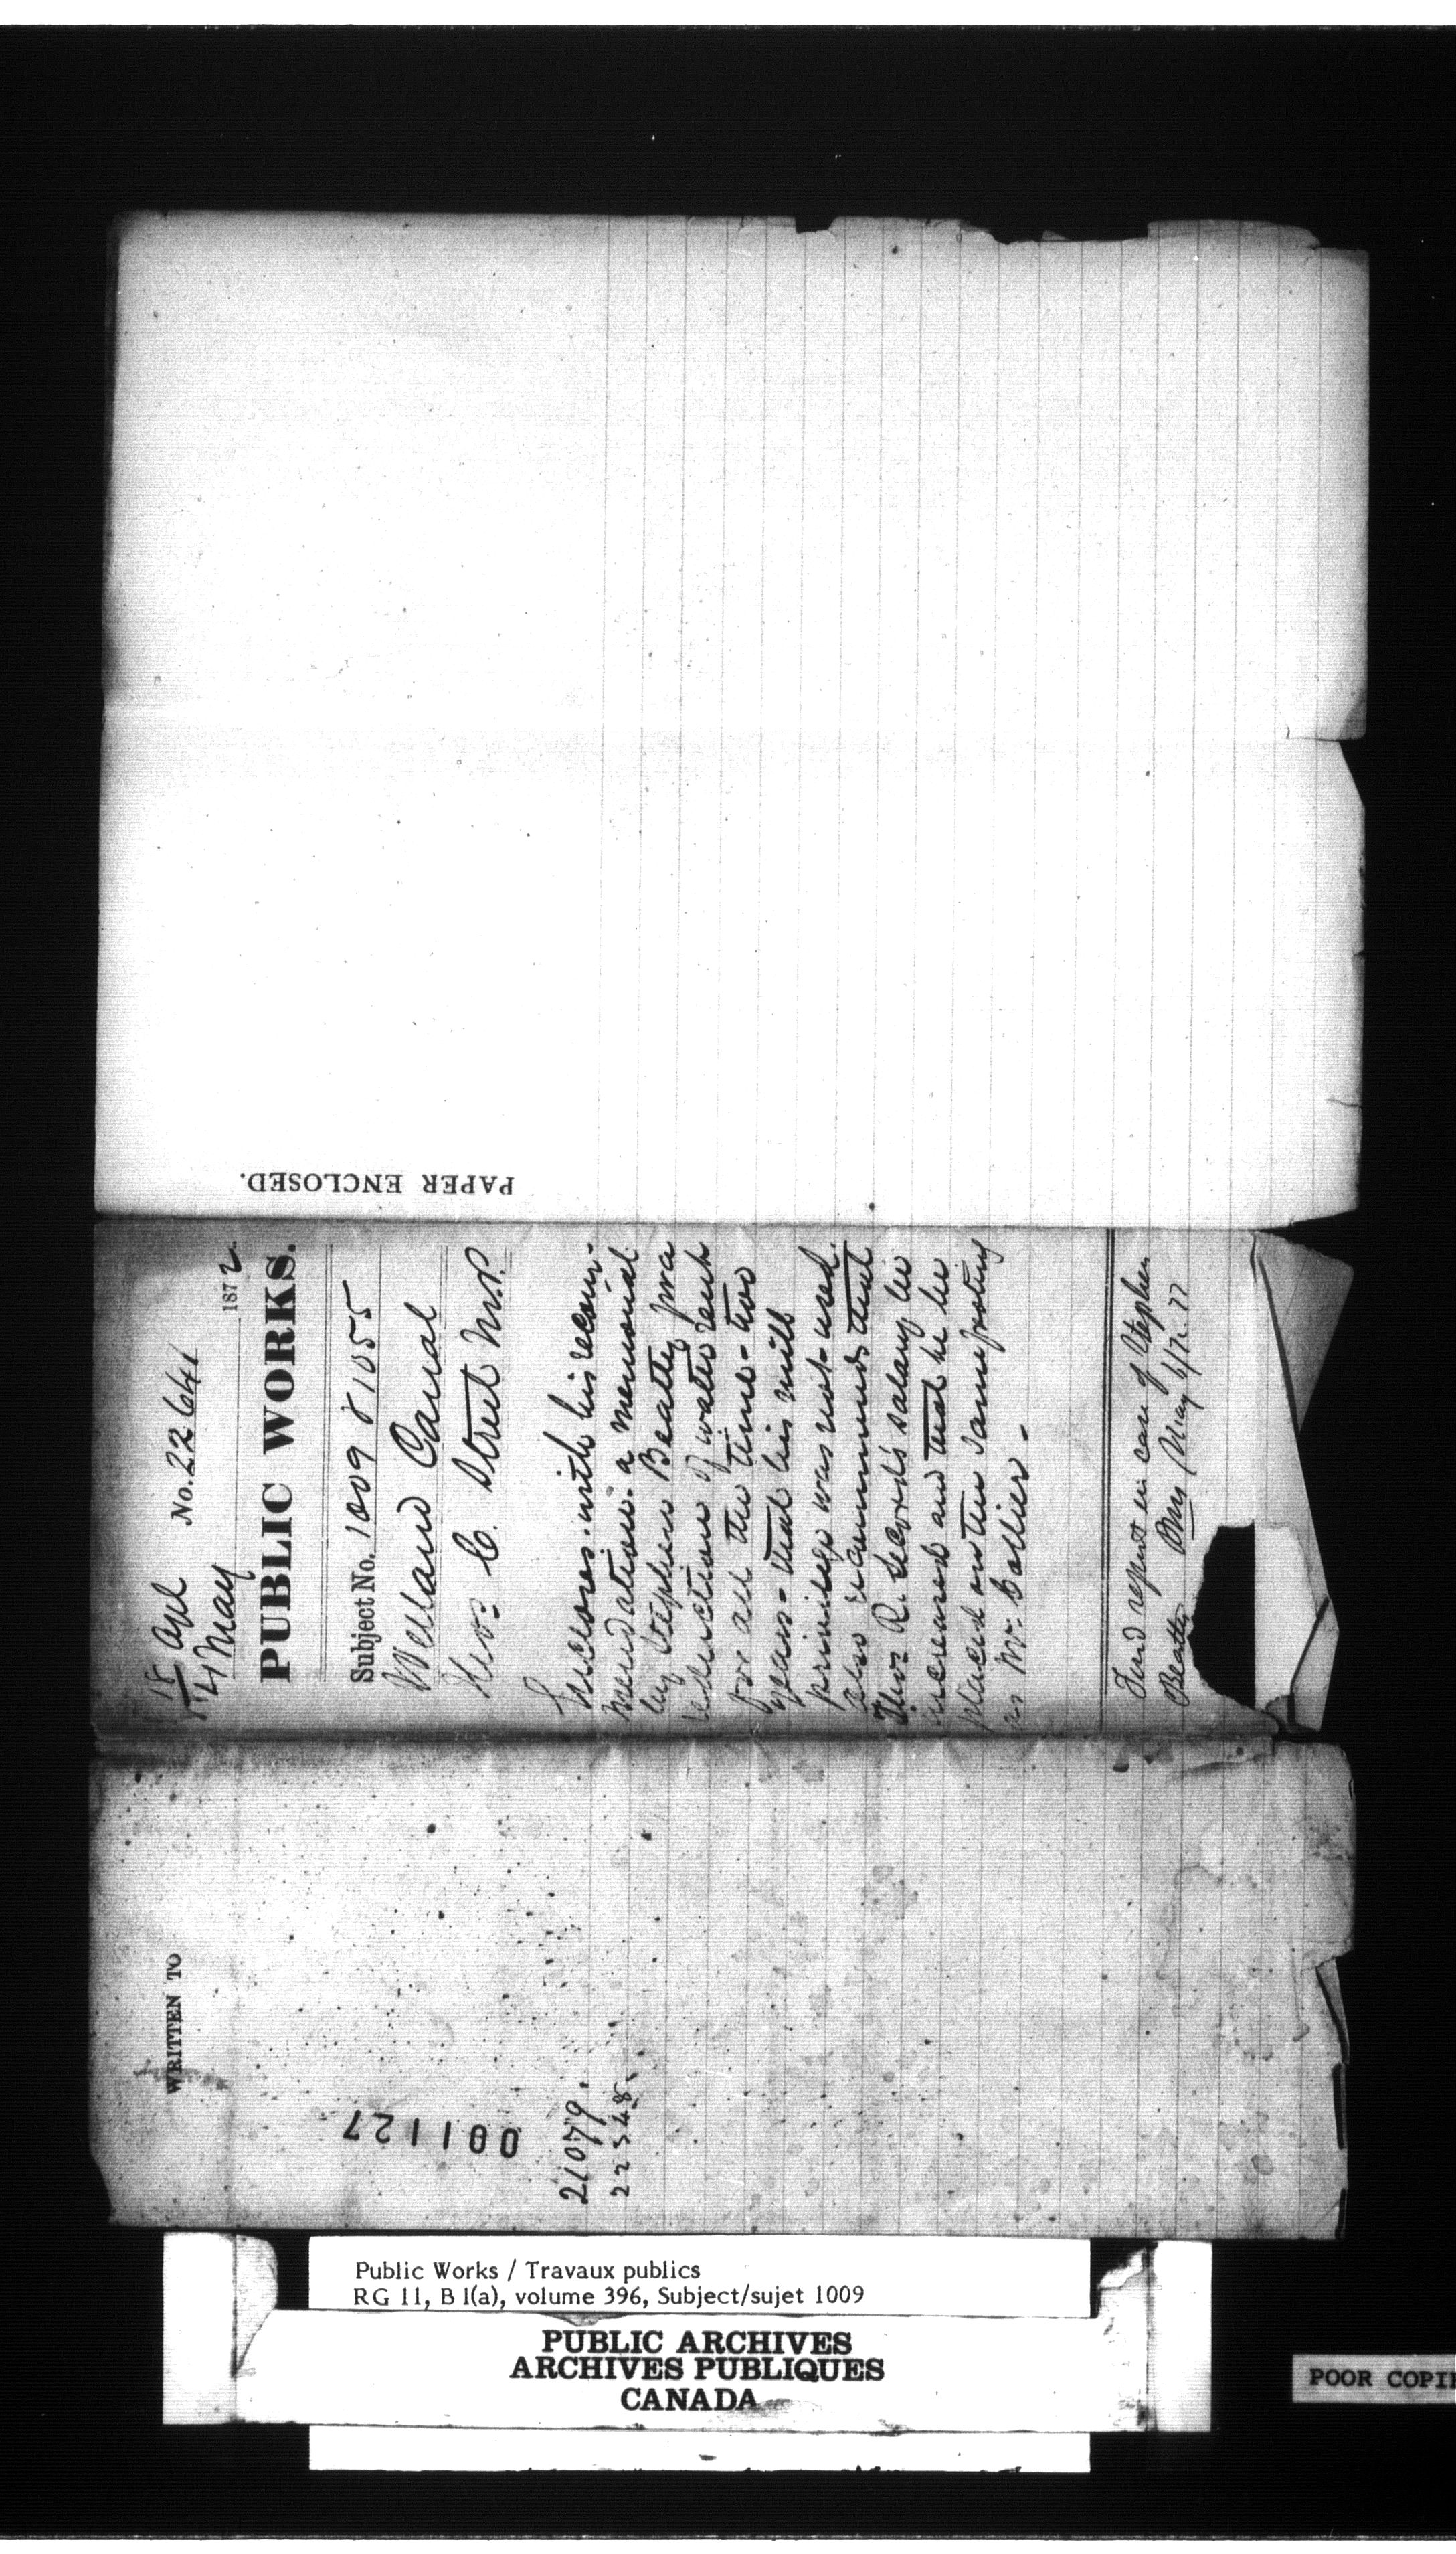 PAPER ENCLOSED.
18 Apl
4 May No. 22641 1872.
PUBLIC WORKS.
Subject No. 1009 8105
Welland Canal
Thos C. Street M.P.
Incloses with his recom-
mendation a memorial
by Stephen Beatty pra
reduction of water rent
for all the time - two
years - that his mill
privilege was not used.
also recommends that
Thos R. Secord's salary be
increased and that he be
placed on the same footing
as Mr. Collier -
Send report in case of Stephen
Beatty May 6/72.
WRITTEN TO
001127
21079.
22348.
Public Works / Travaux publics
RG 11, B 1(a), volume 396, Subject/sujet 1009
PUBLIC ARCHIVES
ARCHIVES PUBLIQUES
CANADA
POOR COPI